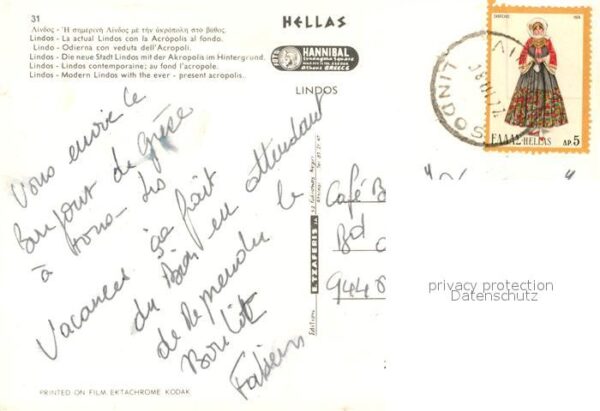 31
Λίνδος - Ἡ σημερινή Λίνδος μέ τήν ἀκρόπολη στό βάθος.
Lindos - La actual Lindos con la Acrópolis al fondo.
Lindo - Odierna con veduta dell'Acropoli.
Lindos - Die neue Stadt Lindos mit der Akropolis im Hintergrund.
Lindos - Lindos contemporaine; au fond l'acropole.
Lindos - Modern Lindos with the ever - present acropolis.
HELLAS
HANNIBAL
Athens GREECE
LINDOS
Vous envoie le
Bonjour de Grèce
à tous
Vacances ça fait
du Bien en attendant
de Reprendre le
Boulot
Fabien
Edition:
E. TZAFERIS
Café B
Bd
944
SARACATSANES
ΕΛΛΑΣ-HELLAS
ΔΡ. 5
LINDOS
privacy protection
Datenschutz
PRINTED ON FILM: EKTACHROME KODAK